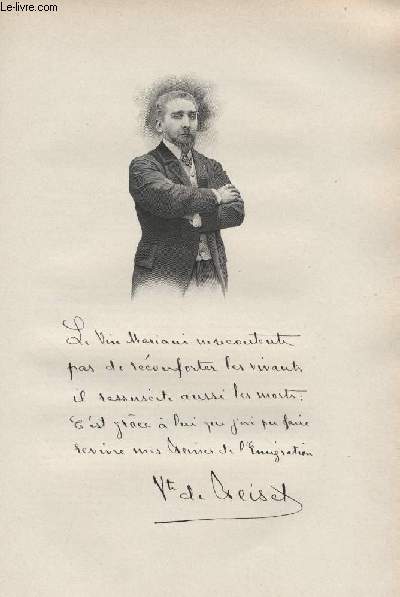 © Le-livre.com
Le Vin Mariani ne se contente
pas de réconforter les vivants
il ressuscite aussi les morts.
C'est grâce à lui que j'ai pu faire
revivre mes Reines de l'Emigration
Vte de Reiset